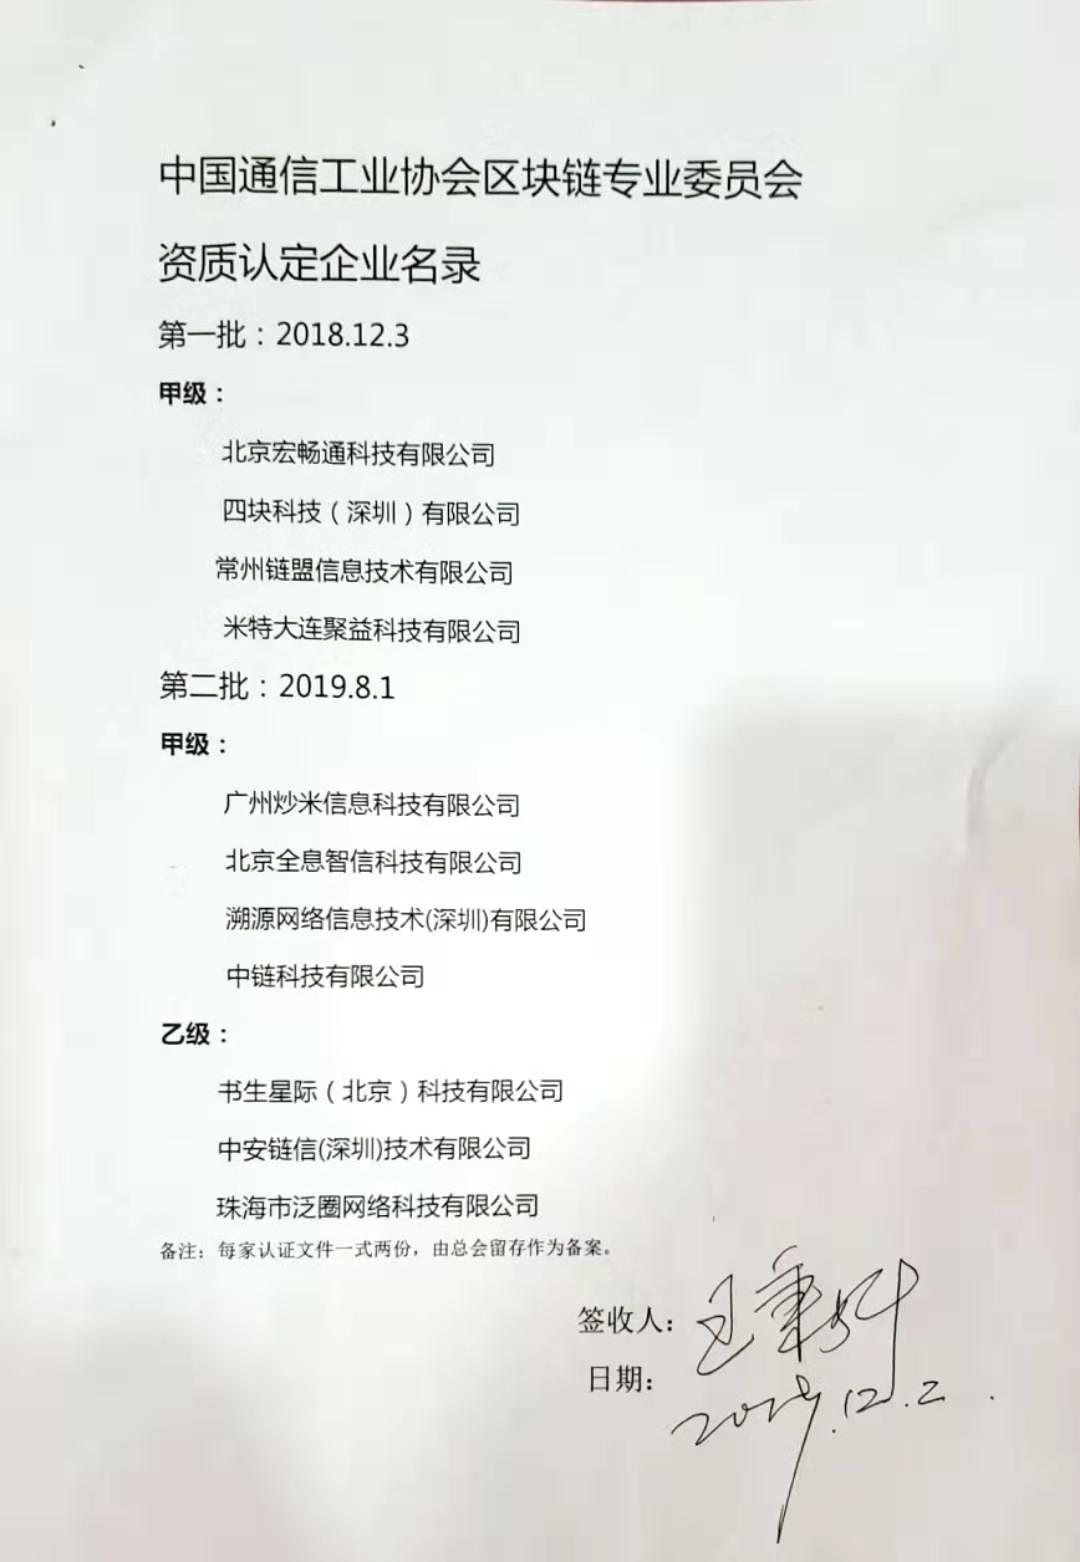 中国通信工业协会区块链专业委员会
资质认定企业名录
第一批：2018.12.3
甲级：
北京宏畅通科技有限公司
四块科技（深圳）有限公司
常州链盟信息技术有限公司
米特大连聚益科技有限公司
第二批：2019.8.1
甲级：
广州炒米信息科技有限公司
北京全息智信科技有限公司
溯源网络信息技术(深圳)有限公司
中链科技有限公司
乙级：
书生星际（北京）科技有限公司
中安链信(深圳)技术有限公司
珠海市泛圈网络科技有限公司
备注：每家认证文件一式两份，由总会留存作为备案。
签收人：
日期：